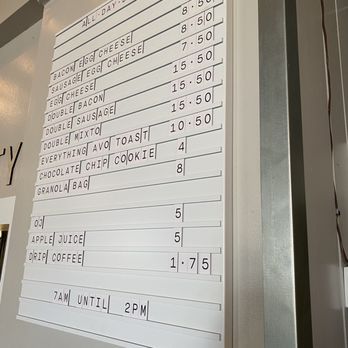 ALL-DAY-
BACON EGG CHEESE 8.50
SAUSAGE EGG CHEESE 8.50
EGG CHEESE 7.50
DOUBLE BACON 15.50
DOUBLE SAUSAGE 15.50
DOUBLE MIXTO 15.50
EVERYTHING AVO TOAST 10.50
CHOCOLATE CHIP COOKIE 4
GRANOLA BAG 8
OJ 5
APPLE JUICE 5
DRIP COFFEE 1.75
7AM UNTIL 2PM